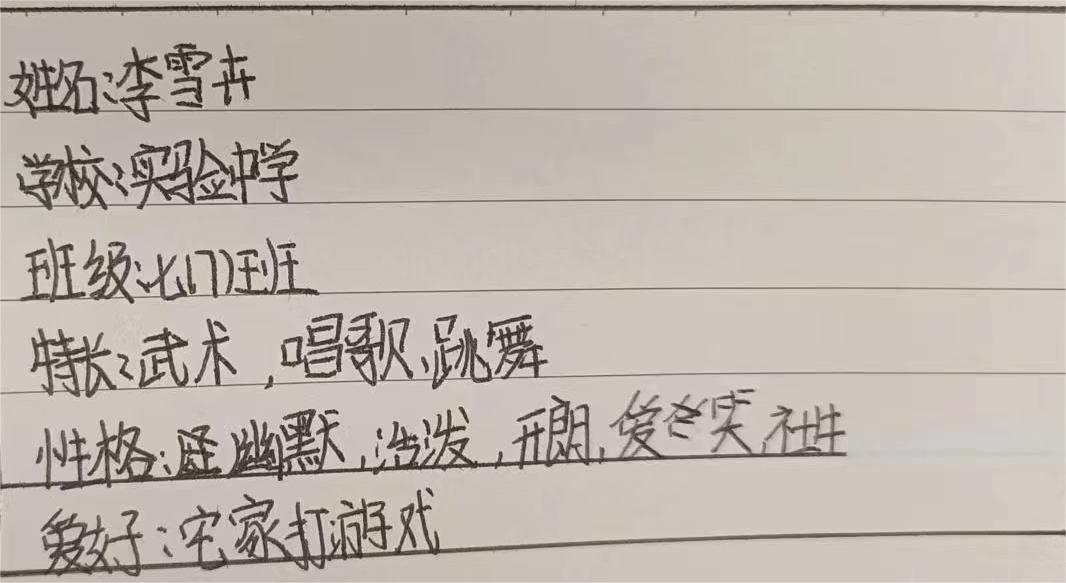 姓名:李雪卉
学校:实验中学
班级:七(7)班
特长:武术,唱歌、跳舞
性格:幽默,活泼,开朗,爱笑,社牛
爱好:宅家打游戏